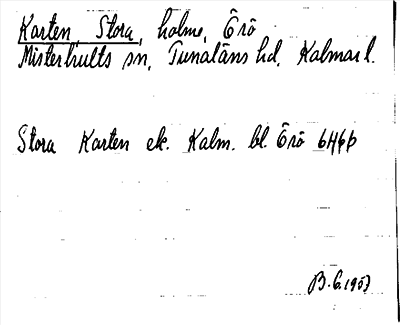 Karten, Stora, holme, Örö
Misterhults sn, Tunaläns hd, Kalmar l.
Stora Karten ek. Kalm. bl. Örö 6H6b
B.G. 1957